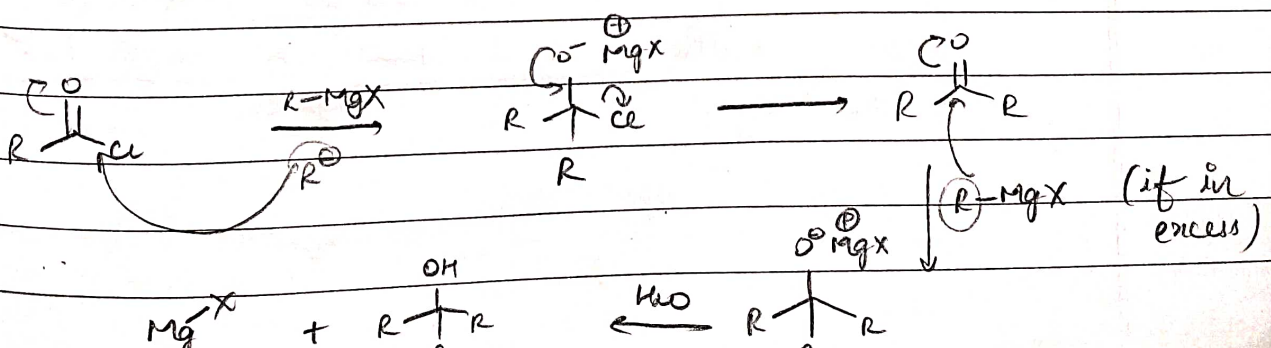 O R Cl
R-MgX
R⊖
O⁻ ⊕MgX
R Cl
R
O
R R
R-MgX (if in excess)
O⊖ ⊕MgX
R R
H₂O
OH
R R
+
Mg X